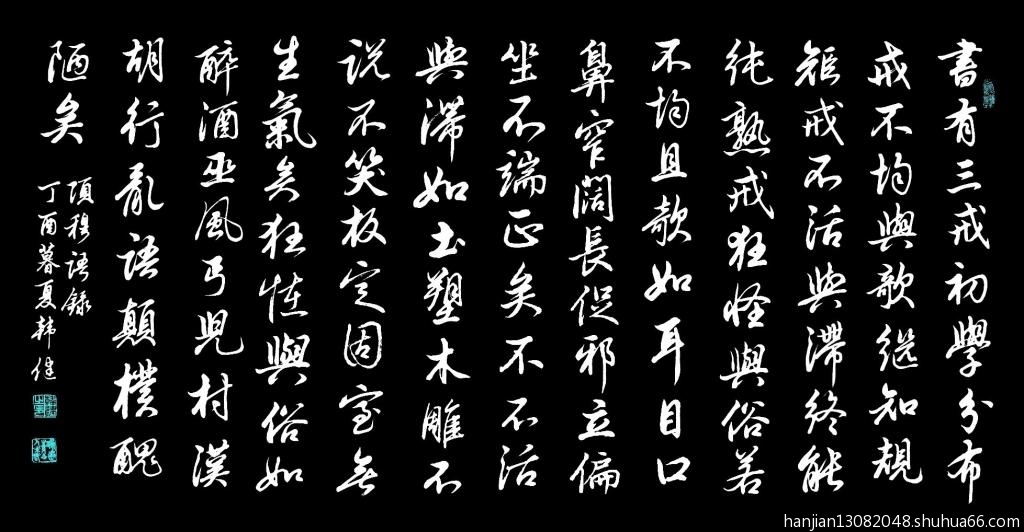 書有三戒初學分布
戒不均與欹継知規
矩戒不活與滯終能
純熟戒狂怪與俗若
不均且欹如耳目口
鼻窄闊長促邪立偏
坐不端正矣不不活
與滯如土塑木雕不
说不笑板定固窒無
生氣矣狂怪與俗如
醉酒巫風丐兒村漢
胡行亂語顛樸醜
陋矣
項穆語録
丁酉暮夏韩健
hanjian13082048.shuhua66.com